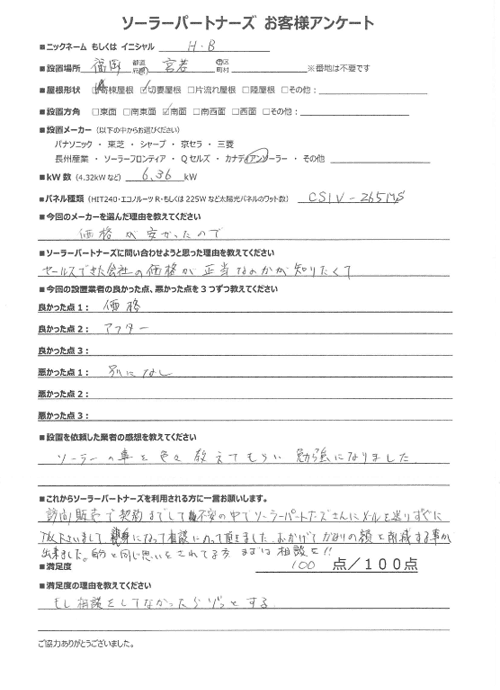 ソーラーパートナーズ お客様アンケート
■ニックネーム もしくは イニシャル H・B
■設置場所 福岡 都道府県 宮若 市区町村 ※番地は不要です
■屋根形状 □寄棟屋根 ☑切妻屋根 □片流れ屋根 □陸屋根 □その他：
■設置方角 □東面 □南東面 ☑南面 □南西面 □西面 □その他：
■設置メーカー （以下の中からお選びください）
パナソニック ・ 東芝 ・ シャープ ・ 京セラ ・ 三菱
長州産業 ・ ソーラーフロンティア ・ Qセルズ ・ カナディアンソーラー ・ その他
■kW数（4.32kWなど） 6.36 kW
■パネル種類（HIT240・エコノルーツR・もしくは225Wなど太陽光パネルのワット数） CS1V-265MS
■今回のメーカーを選んだ理由を教えてください
価格が安かったので
■ソーラーパートナーズに問い合わせようと思った理由を教えてください
セールスできた会社の価格が正当なのかが知りたくて
■今回の設置業者の良かった点、悪かった点を3つずつ教えてください
良かった点1： 価格
良かった点2： アフター
良かった点3：
悪かった点1： 別になし
悪かった点2：
悪かった点3：
■設置を依頼した業者の感想を教えてください
ソーラーの事を色々教えてもらい勉強になりました
■これからソーラーパートナーズを利用される方に一言お願いします。
訪問販売で契約までして不安の中でソーラーパートナーズさんにメールを送りすぐに
親身になって相談にのって頂きました。おかげでかなりの額を削減する事が
出来ました。同じ思いをされてる方 まずは相談を!!
■満足度 100 点/100点
■満足度の理由を教えてください
もし相談をしてなかったらゾッとする
ご協力ありがとうございました。